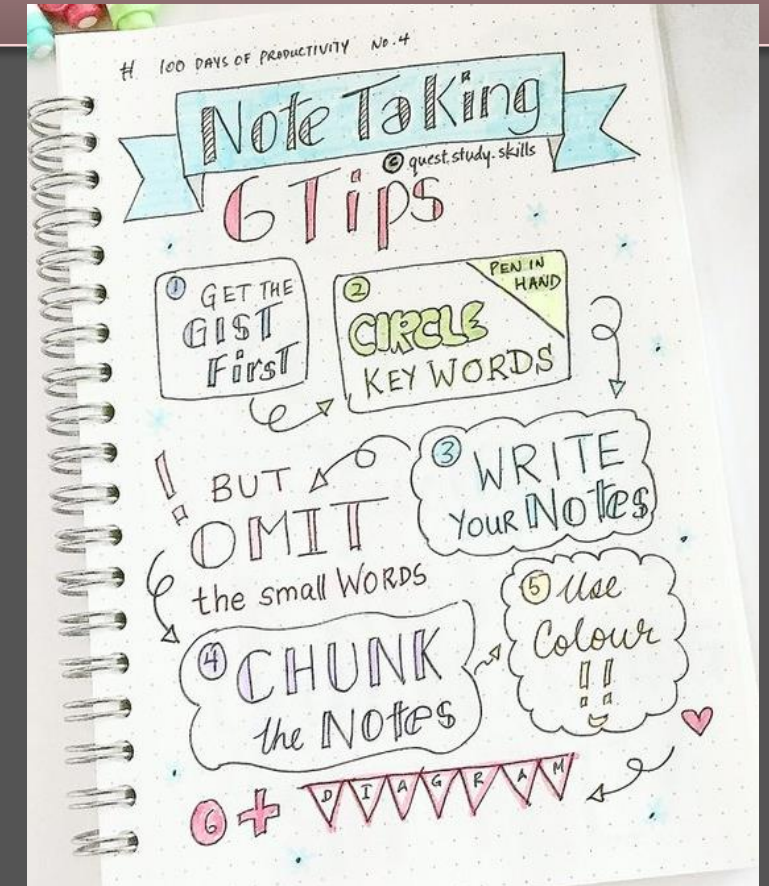 # 100 DAYS OF PRODUCTIVITY NO.4
Note TaKing
© quest.study.skills
6 Tips
1 GET THE
GIST
FirsT
2 PEN IN
HAND
CIRCLE
KEY WORDS
3 WRITE
YOUR NOtes
! BUT
OMIT
the small WORDS
4 CHUNK
the NOtes
5 Use
Colour
!!
6 + DIAGRAM